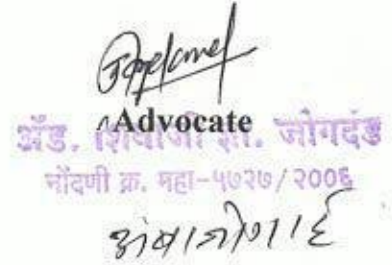 Advocate
अ‍ॅड. शिवाजी ज्ञा. जोगदंड
नोंदणी क्र. महा-५७२७/२००६
अंबाजोगाई